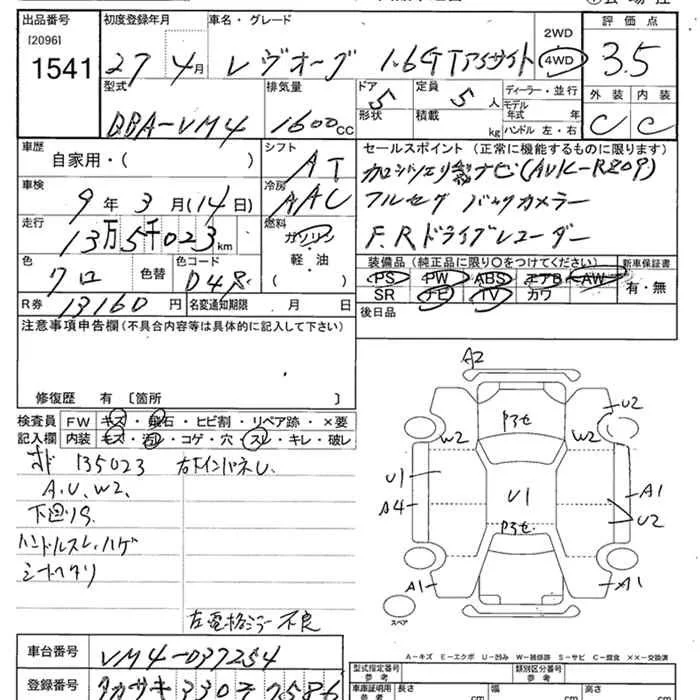 出品番号 初度登録年月 車名・グレード 2WD 評価点
[2096] 1541 27年4月 レヴォーグ 1.6GTアイサイト 4WD 3.5
型式 排気量 ドア 定員 ディーラー・並行 外装 内装
形状 5 積載 5人 モデル年式 年 C C
DBA-VM4 1600CC kg ハンドル 左・右
車歴 自家用・( ) シフト AT セールスポイント(正常に機能するものに限ります)
車検 9年3月(14日) 冷房 AAC ナビ(AVIC-R209)
フルセグ バックカメラー
走行 13万5千023km 燃料 ガソリン・軽・油 ( ) F.Rドライブレコーダー
色 クロ 色替 色コード D4S 装備品(純正品に限り○をつけてください) 新車保証書
PS PW ABS エアB AW 有・無
SR ナビ TV カワ
R券 13160円 名変通知期限 月 日 後日品
注意事項申告欄(不具合内容等は具体的に記入して下さい)
修復歴 有 [箇所 ]
検査員 FW キズ・飛石・ヒビ割・リペア跡・×要
記入欄 内装 キズ・汚レ・コゲ・穴・スレ・キレ・破レ
135023
A.U.W2.
下廻りS.
ハンドルスレ、ハゲ
シートヘタリ
左電格ミラー不良
A2
U2
W2 W2
U1 A1
A4 U1 U2
A1 A1
スペア
A-キズ E-エクボ U-凹み W-補修跡 S-サビ C-腐食 ××-交換済
車台番号 VM4-037254
型式指定番号 参考 類別区分番号 参考
登録番号 タカサキ 330 7586
車庫証明用 参考 長さ cm 幅 cm 高さ cm